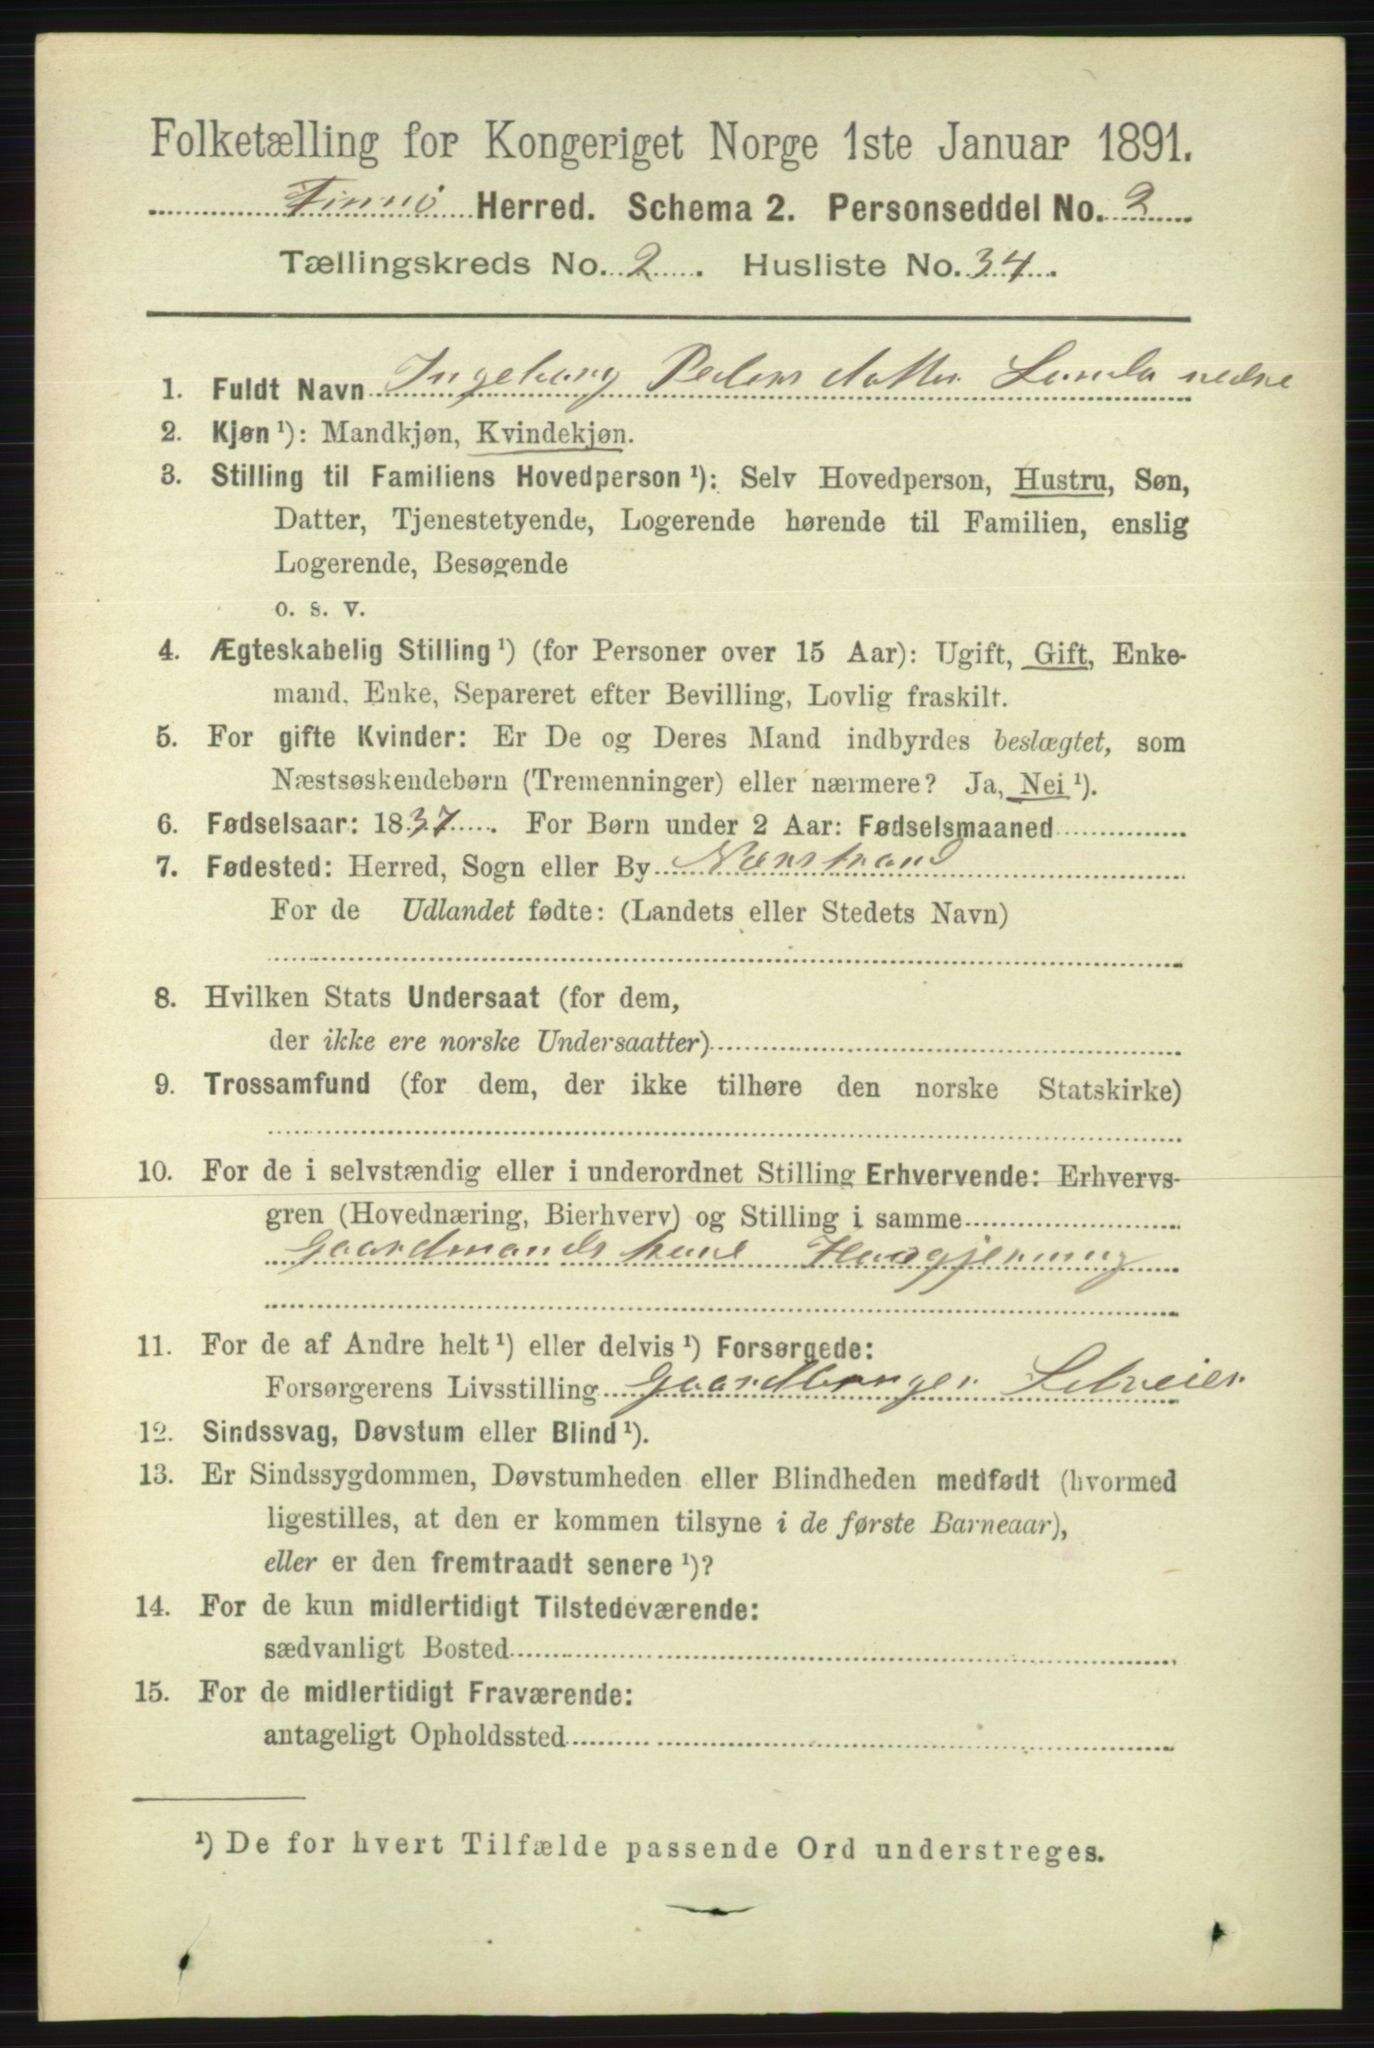 Folketælling for Kongeriget Norge 1ste Januar 1891.
Finnø Herred. Schema 2. Personseddel No. 2
Tællingskreds No. 2. Husliste No. 34.
1. Fuldt Navn Ingeborg Pedersdatter Landa nedre
2. Kjøn ¹): Mandkjøn, Kvindekjøn.
3. Stilling til Familiens Hovedperson ¹): Selv Hovedperson, Hustru, Søn,
Datter, Tjenestetyende, Logerende hørende til Familien, enslig
Logerende, Besøgende
o. s. v.
4. Ægteskabelig Stilling ¹) (for Personer over 15 Aar): Ugift, Gift, Enke-
mand, Enke, Separeret efter Bevilling, Lovlig fraskilt.
5. For gifte Kvinder: Er De og Deres Mand indbyrdes beslægtet, som
Næstsøskendebørn (Tremenninger) eller nærmere? Ja, Nei ¹).
6. Fødselsaar: 1837. For Børn under 2 Aar: Fødselsmaaned
7. Fødested: Herred, Sogn eller By Nærstrand
For de Udlandet fødte: (Landets eller Stedets Navn)
8. Hvilken Stats Undersaat (for dem,
der ikke ere norske Undersaatter)
9. Trossamfund (for dem, der ikke tilhøre den norske Statskirke)
10. For de i selvstændig eller i underordnet Stilling Erhvervende: Erhvervs-
gren (Hovednæring, Bierhverv) og Stilling i samme
Gaardmands kone Husgjerning
11. For de af Andre helt ¹) eller delvis ¹) Forsørgede:
Forsørgerens Livsstilling Gaardbruger Selveier
12. Sindssvag, Døvstum eller Blind ¹).
13. Er Sindssygdommen, Døvstumheden eller Blindheden medfødt (hvormed
ligestilles, at den er kommen tilsyne i de første Barneaar),
eller er den fremtraadt senere ¹)?
14. For de kun midlertidigt Tilstedeværende:
sædvanligt Bosted
15. For de midlertidigt Fraværende:
antageligt Opholdssted
¹) De for hvert Tilfælde passende Ord understreges.